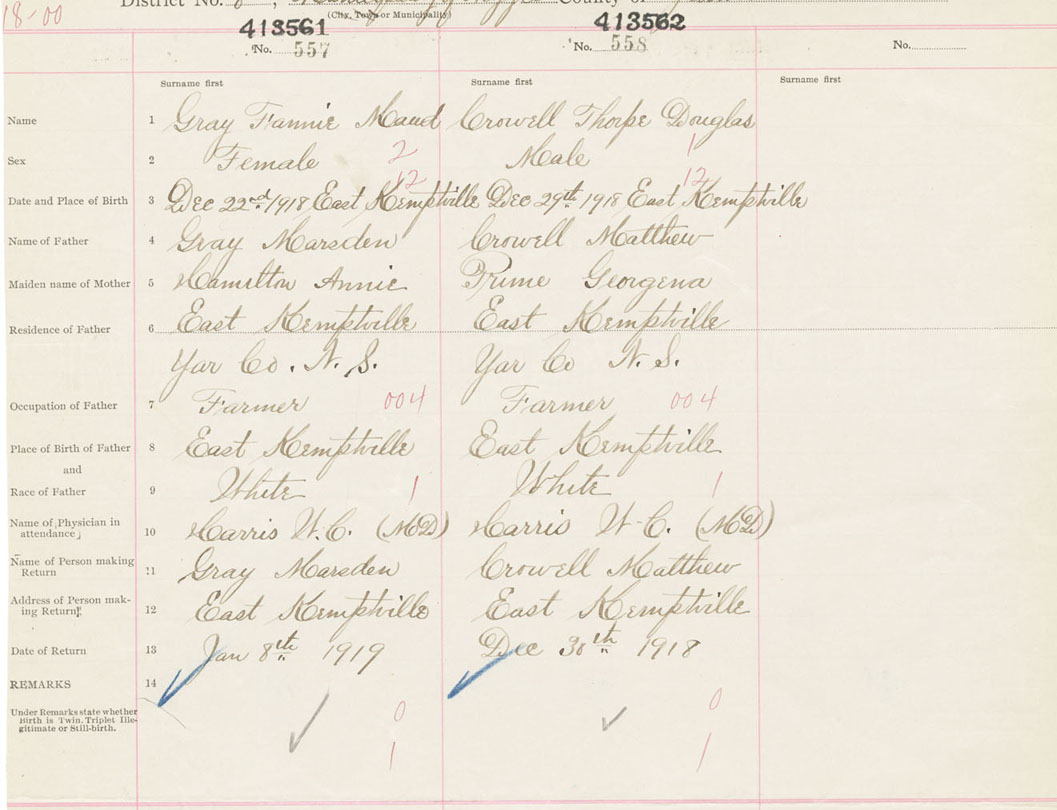 18-00
District No. 8, County of
(City, Town or Municipality)
413561 413562
No. 557 No. 558 No.
Surname first Surname first Surname first
Name 1 Gray Fannie Maud Crowell Thorpe Douglas
Sex 2 Female 2 Male 1
12 12
Date and Place of Birth 3 Dec 22nd 1918 East Kemptville Dec 29th 1918 East Kemptville
Name of Father 4 Gray Marsden Crowell Matthew
Maiden name of Mother 5 Hamilton Annie Prime Georgena
Residence of Father 6 East Kemptville East Kemptville
Yar Co. N. S. Yar Co N. S.
Occupation of Father 7 Farmer 004 Farmer 004
Place of Birth of Father 8 East Kemptville East Kemptville
and
Race of Father 9 White 1 White 1
Name of Physician in
attendance 10 Harris W. C. (MD) Harris W. C. (MD)
Name of Person making
Return 11 Gray Marsden Crowell Matthew
Address of Person mak-
ing Return 12 East Kemptville East Kemptville
Date of Return 13 Jan 8th 1919 Dec 30th 1918
REMARKS 14
Under Remarks state whether
Birth is Twin, Triplet Ille-
gitimate or Still-birth.
0 0
1 1